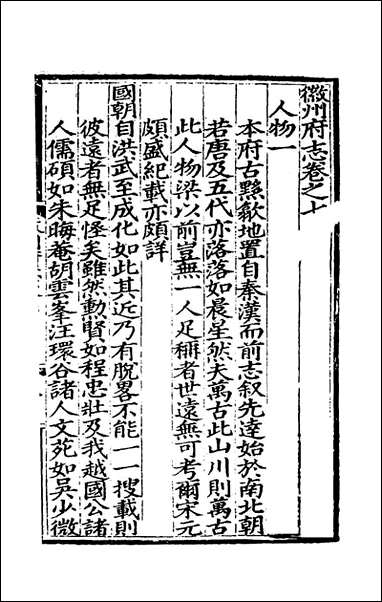 徽州府志卷之七
人物一
本府古黟歙地置自秦漢而前志叙先達始於南北朝
若唐及五代亦落落如晨星然夫萬古此山川則萬古
此人物梁以前豈無一人足稱者世遠無可考爾宋元
頗盛紀載亦頗詳
國朝自洪武至成化如此其近乃有脫畧不能一一搜載則
彼遠者無足怪矣雖然勲賢如程忠壯及我越國公諸
人儒碩如朱晦菴胡雲峯汪環谷諸人文苑如吳少微